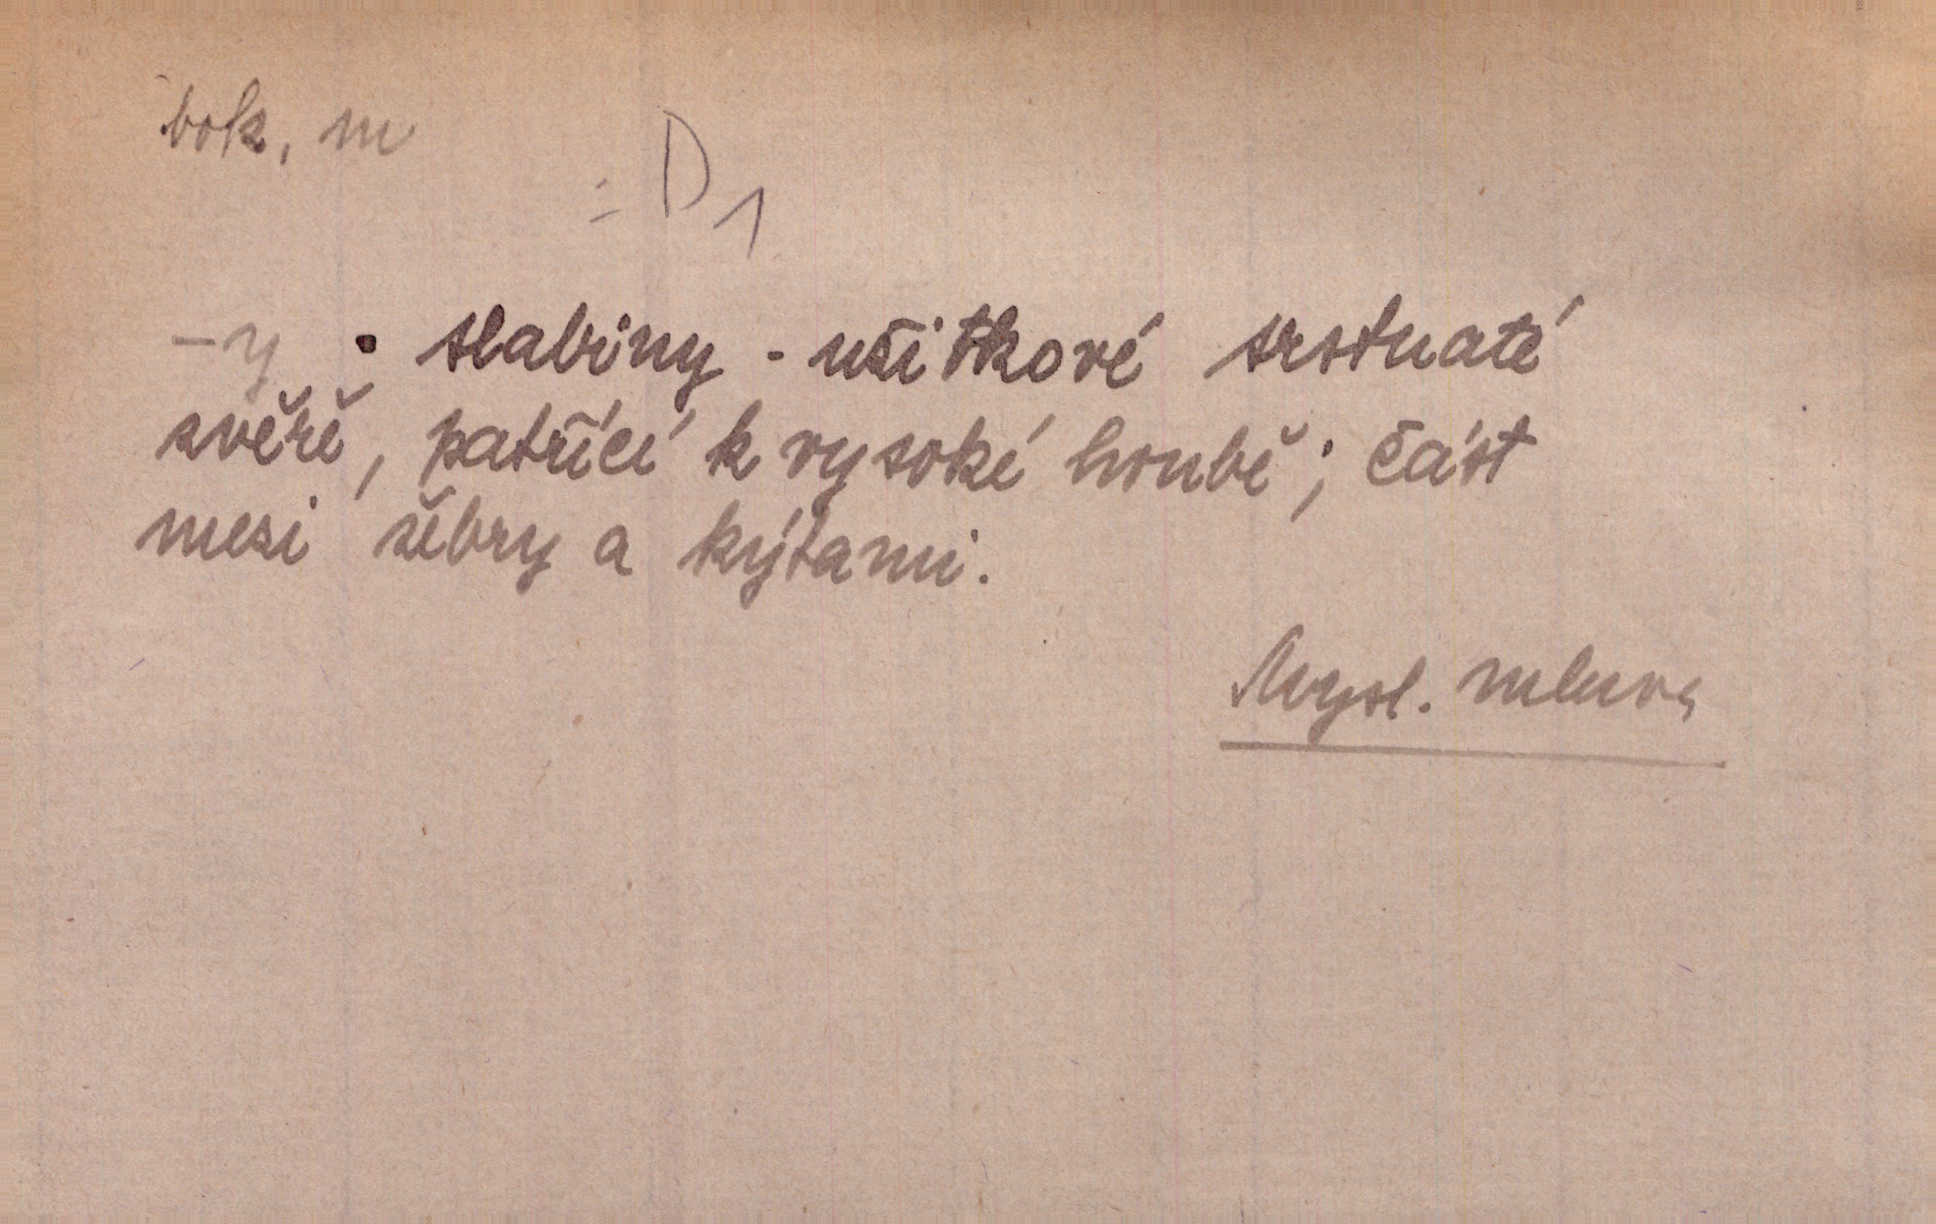 bok, m
= D1
-y . slabiny - užitkové srstnaté
zvěře, patřící k vysoké honbě; část
mezi žebry a kýtami.
Mysl. mluva